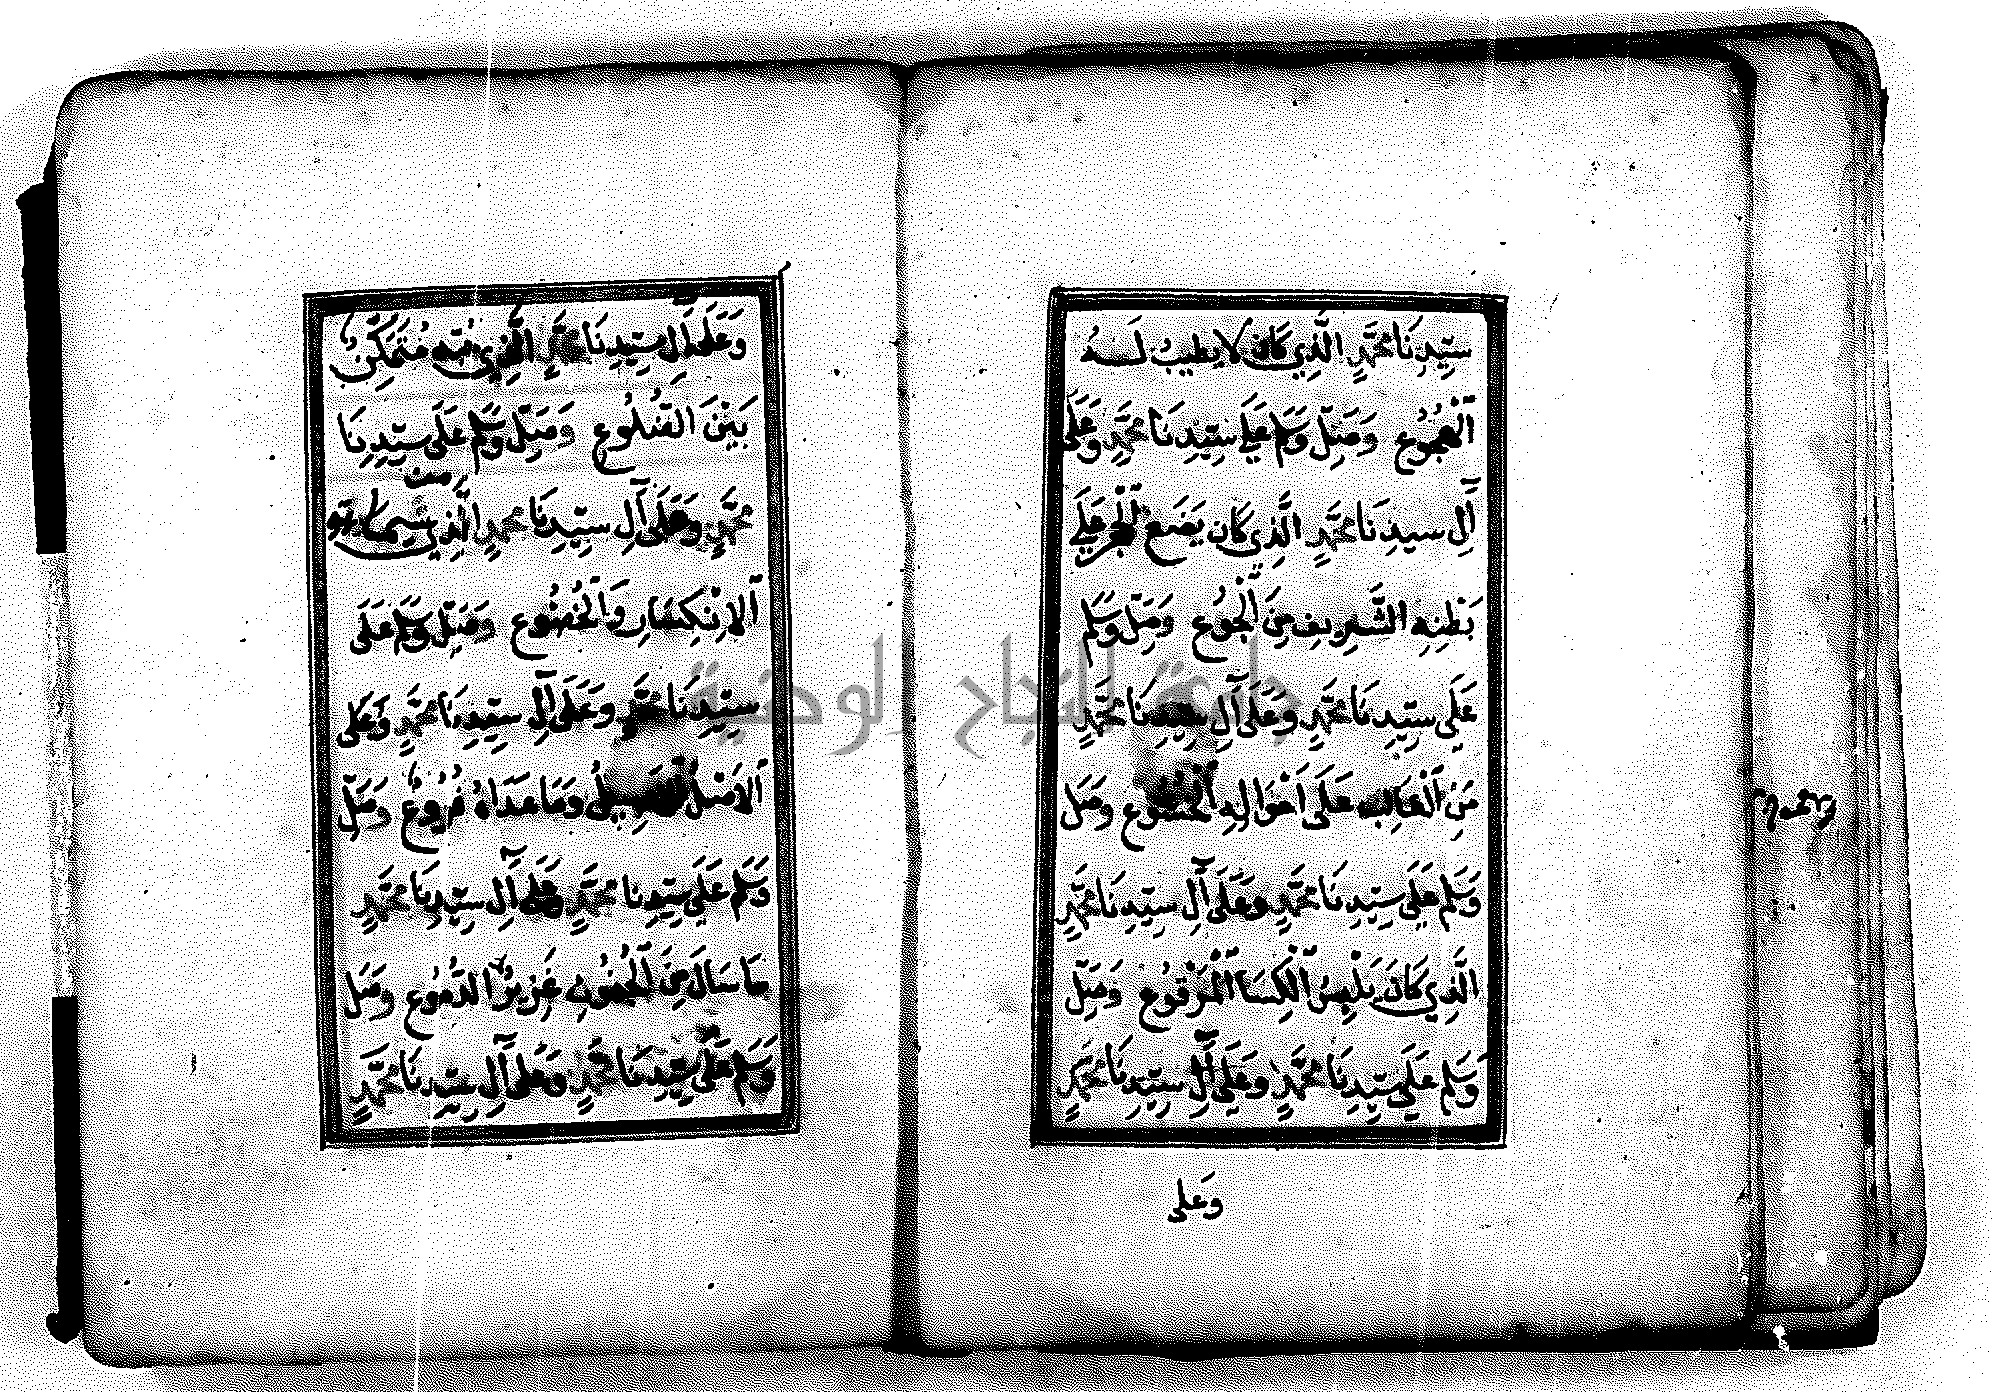 سَيِّدِنَا مُحَمَّدٍ الَّذِي كَانَ لَا يَطِيبُ لَهُ
الْهُجُوعُ وَصَلِّ وَسَلِّم عَلَى سَيِّدِنَا مُحَمَّدٍ وَعَلَى
آلِ سَيِّدِنَا مُحَمَّدٍ الَّذِي كَانَ يَضَعُ الْحَجَرَ عَلَى
بَطْنِهِ الشَّرِيفِ مِنَ الْجُوعِ وَصَلِّ وَسَلِّم
عَلَى سَيِّدِنَا مُحَمَّدٍ وَعَلَى آلِ سَيِّدِنَا مُحَمَّدٍ
مَنِ الْغَالِبُ عَلَى أَحْوَالِهِ الْخُشُوعُ وَصَلِّ
وَسَلِّم عَلَى سَيِّدِنَا مُحَمَّدٍ وَعَلَى آلِ سَيِّدِنَا مُحَمَّدٍ
الَّذِي كَانَ يَلْبَسُ الْكِسَا الْمَرْقُوعَ وَصَلِّ
وَسَلِّم عَلَى سَيِّدِنَا مُحَمَّدٍ وَعَلَى آلِ سَيِّدِنَا مُحَمَّدٍ
وعلى
وَعَلَى آلِ سَيِّدِنَا مُحَمَّدٍ الَّذِي حُبُّهُ مُتَمَكِّنٌ
بَيْنَ الضُّلُوعِ وَصَلِّ وَسَلِّم عَلَى سَيِّدِنَا
مُحَمَّدٍ وَعَلَى آلِ سَيِّدِنَا مُحَمَّدٍ الَّذِي مِنْ شِيمَاتِهِ
الْاِنْكِسَارُ وَالْخُضُوعُ وَصَلِّ وَسَلِّم عَلَى
سَيِّدِنَا مُحَمَّدٍ وَعَلَى آلِ سَيِّدِنَا مُحَمَّدٍ وَعَلَى
الْاَصْلِ وَمَا عَدَاهُ فُرُوعٌ وَصَلِّ
وَسَلِّم عَلَى سَيِّدِنَا مُحَمَّدٍ وَعَلَى آلِ سَيِّدِنَا مُحَمَّدٍ
مَا سَالَ مِنَ الْجُفُونِ غَزِيرُ الدُّمُوعِ وَصَلِّ
وَسَلِّم عَلَى سَيِّدِنَا مُحَمَّدٍ وَعَلَى آلِ سَيِّدِنَا مُحَمَّدٍ
جامعة النجاح الوطنية